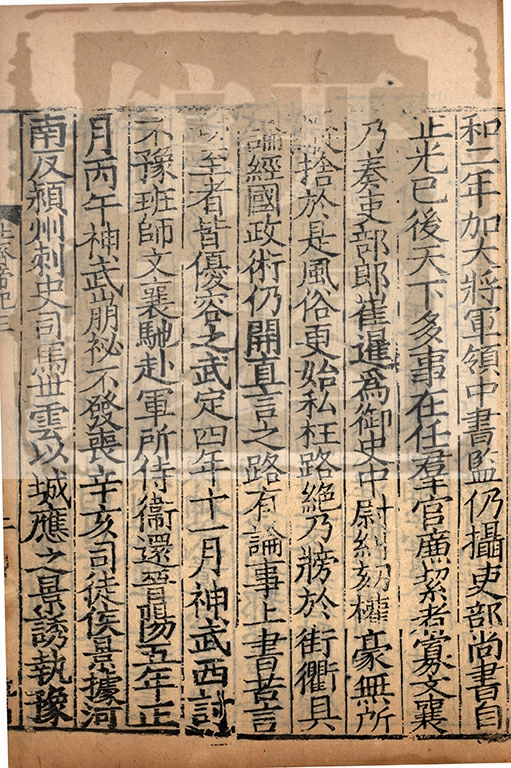 和二年加大將軍領中書監仍攝吏部尚書自
正光已後天下多事在任羣官廉絜者寡文襄
乃奏吏部郎崔暹為御史中尉糾劾權豪無所
捨於是風俗更始私枉路絕乃牓於街衢具
論經國政術仍開直言之路有論事上書苦言
至者皆優容之武定四年十一月神武西討
不豫班師文襄馳赴軍所侍衞還晉陽五年正
月丙午神武崩祕不發喪辛亥司徒侯景據河
南反潁州刺史司馬世雲以城應之景誘執豫